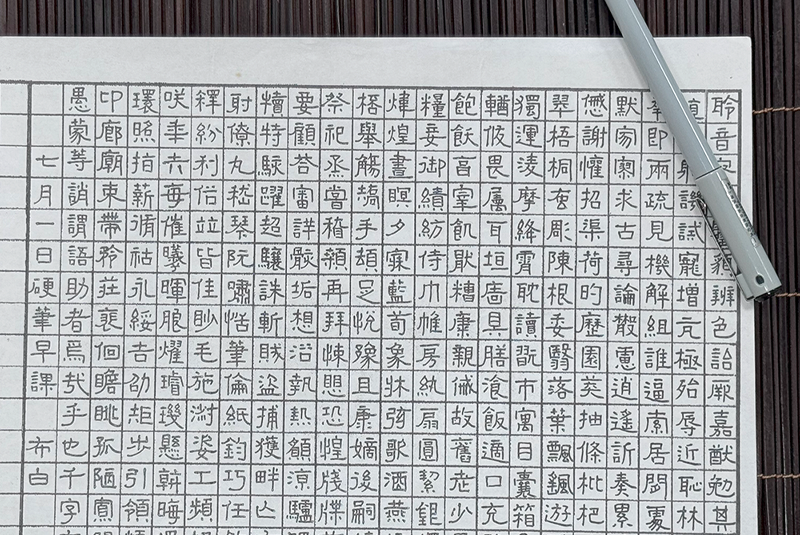 聆音貌辨色詒厥嘉猷勉其
躬譏誡寵增亢極殆辱近恥林
幸即兩疏見機解組誰逼索居閒處
默寂寥求古尋論散慮逍遙訢奏累
慼謝懽招渠荷的歷園英抽條枇杷
翠梧桐蚤彫陳根委翳落葉飄颻遊
獨運凌摩絳霄耽讀翫市寓目囊箱
輶攸畏屬耳垣牆具膳飡飯適口充
飽飫享宰飢猒糟糠親戚故舊老少
糧妾御績紡侍巾帷房紈扇圓潔銀
煒煌晝瞑夕寐藍筍象牀弦歌酒燕
桮舉觴矯手頓足悅豫且康嫡後嗣
祭祀烝嘗稽顙再拜悚懼恐惶牋牒
要顧答審詳骸垢想浴執熱願涼驢
犢特駭躍超驤誅斬賊盜捕獲畔亡
射僚丸嵇琴阮嘯恬筆倫紙鈞巧任
釋紛利俗竝皆佳妙毛施淑姿工頻
咲年矢每催曦暉朗燿璿璣懸斡晦
環照指薪脩祜永綏吉劭矩步引領
卬廊廟束帶矜莊裵佪瞻眺孤陋寡
愚蒙等誚謂語助者焉哉乎也千字
七月一日硬筆早課 布白